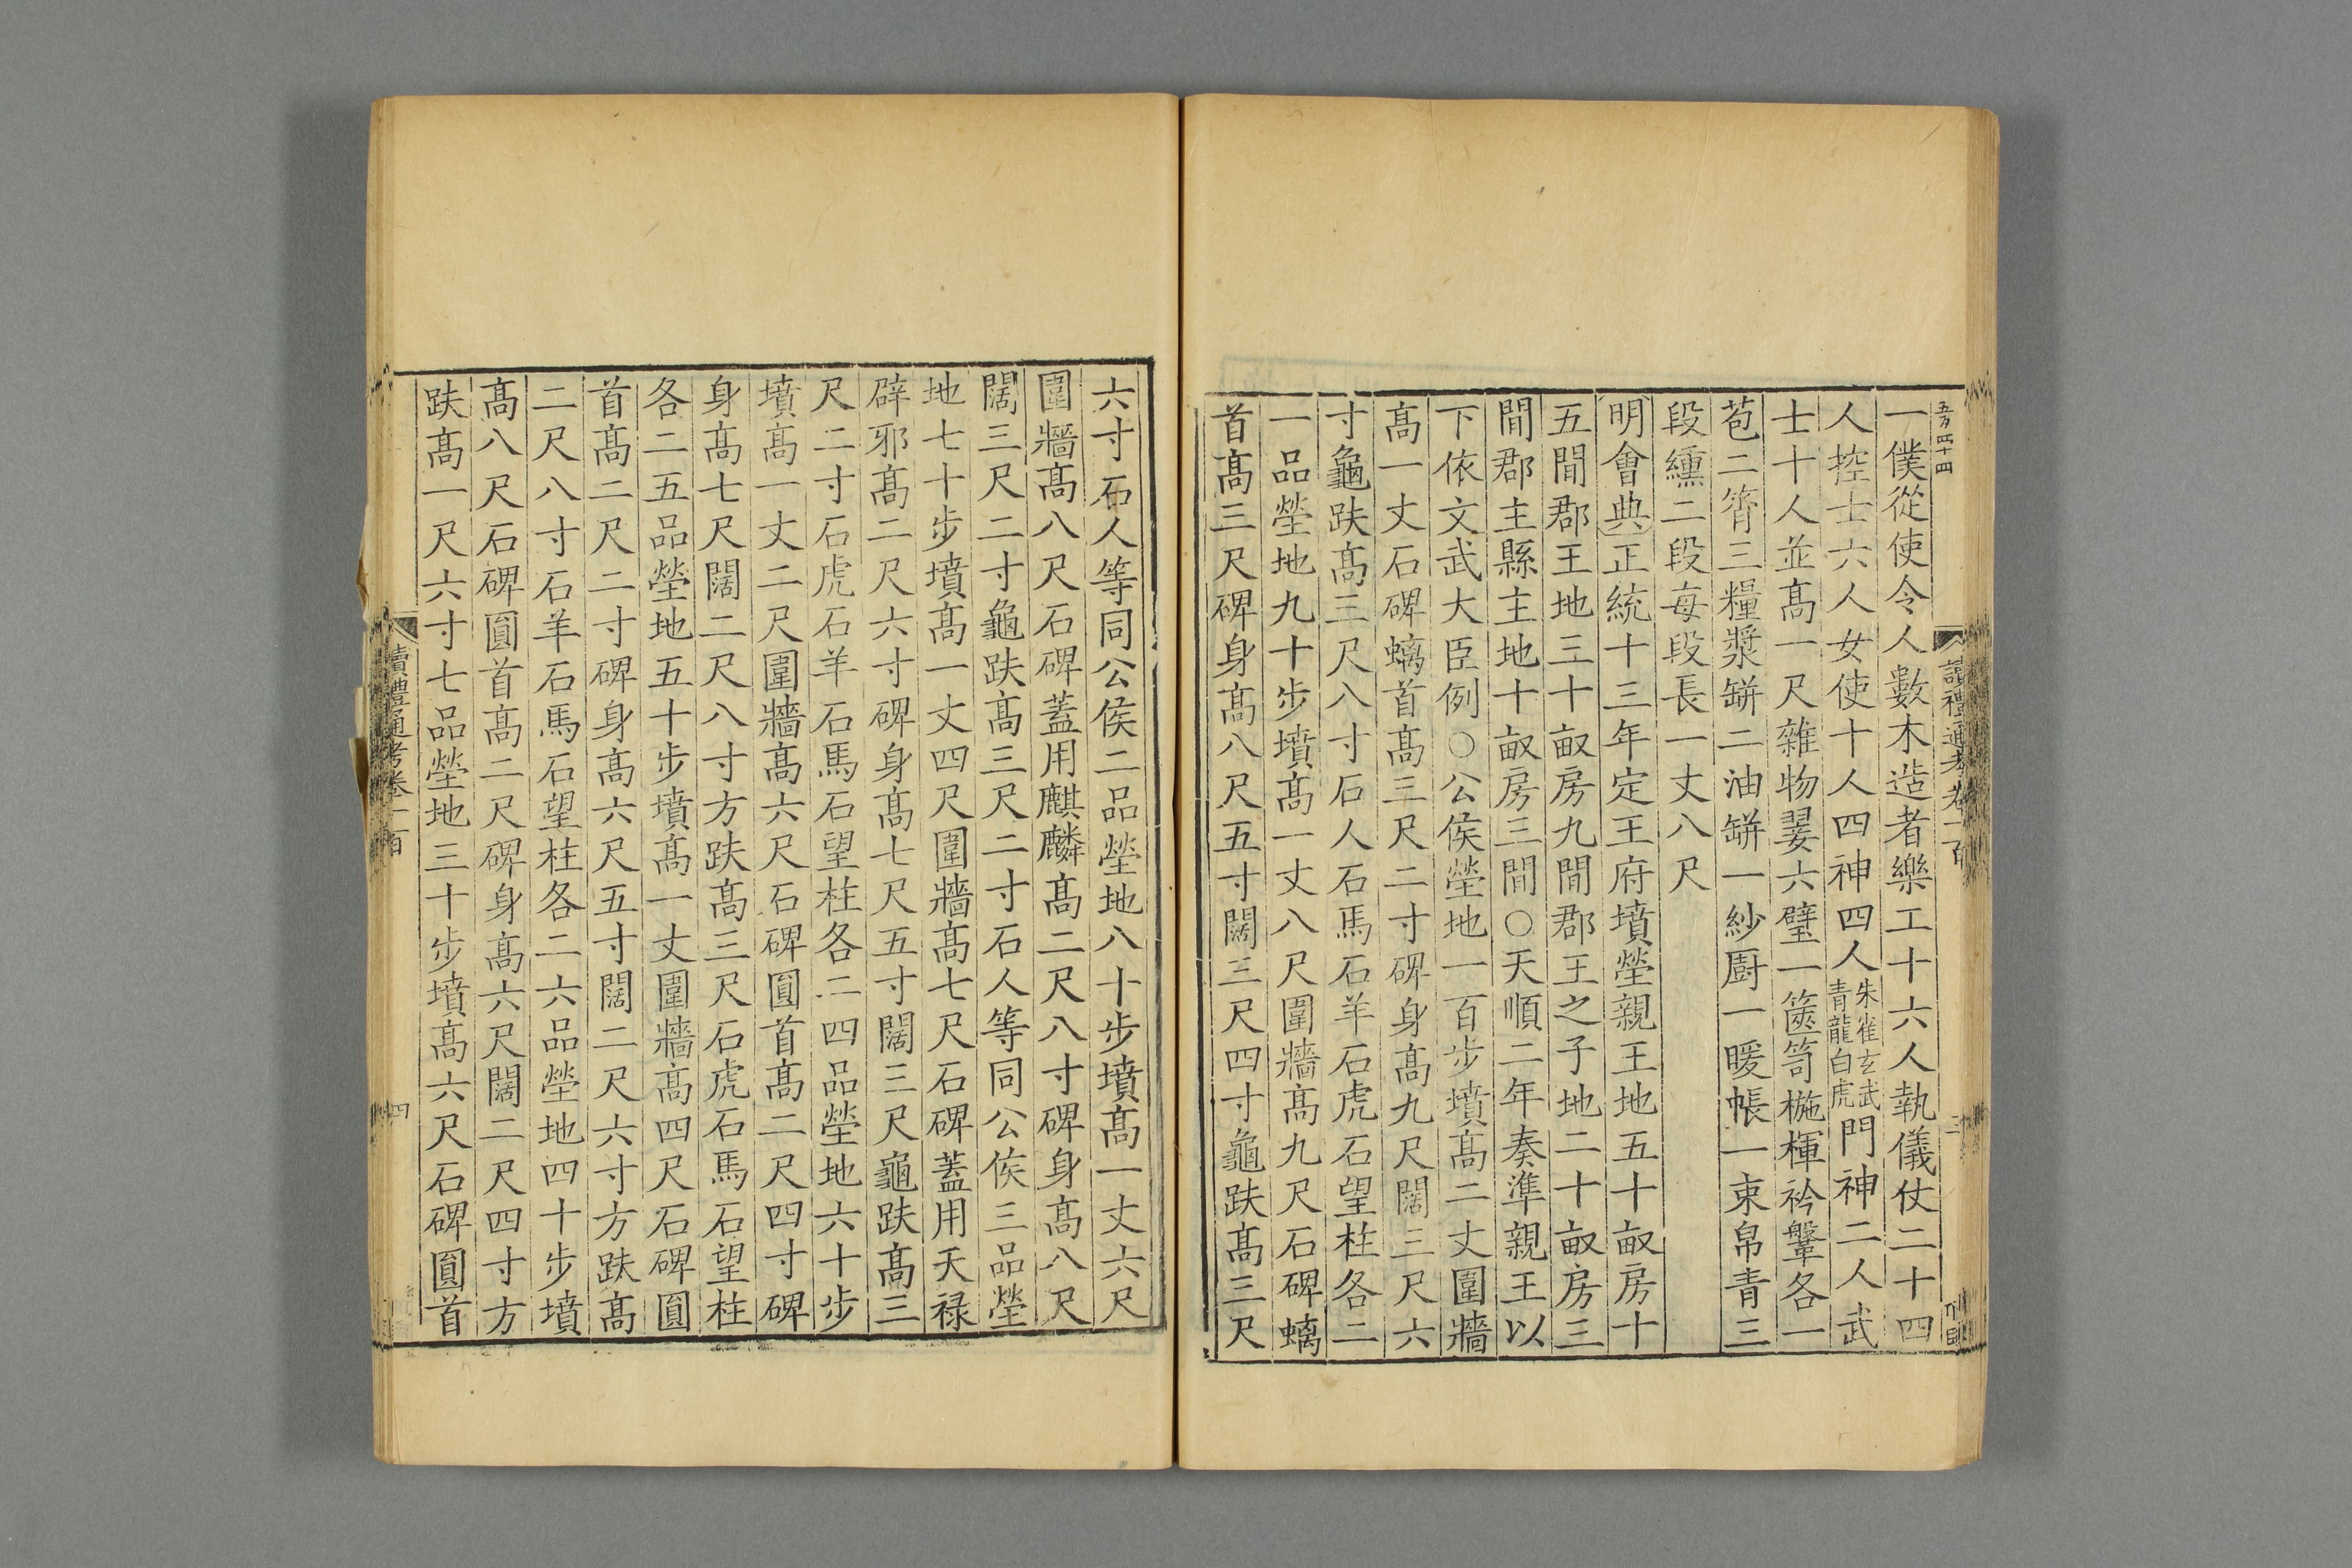 五万四十四
讀禮通考卷一百
三
一僕從使令人數木造者樂工十六人執儀仗二十四
人控士六人女使十人四神四人朱雀玄武青龍白虎門神二人武
士十人並髙一尺雜物翣六璧一篋笥椸楎衿鞶各一
苞二筲三糧漿缾二油缾一紗厨一暖帳一束帛青三
段纁二段每段長一丈八尺
明會典正統十三年定王府墳塋親王地五十畝房十
五間郡王地三十畝房九間郡王之子地二十畝房三
間郡主縣主地十畝房三間○天順二年奏準親王以
下依文武大臣例○公侯塋地一百步墳髙二丈圍牆
髙一丈石碑螭首髙三尺二寸碑身髙九尺闊三尺六
寸龜趺髙三尺八寸石人石馬石羊石虎石望柱各二
一品塋地九十步墳髙一丈八尺圍牆髙九尺石碑螭
首髙三尺碑身髙八尺五寸闊三尺四寸龜趺髙三尺
六寸石人等同公侯二品塋地八十步墳髙一丈六尺
圍牆髙八尺石碑蓋用麒麟髙二尺八寸碑身髙八尺
闊三尺二寸龜趺髙三尺二寸石人等同公侯三品塋
地七十步墳髙一丈四尺圍牆髙七尺石碑蓋用天禄
辟邪髙二尺六寸碑身髙七尺五寸闊三尺龜趺髙三
尺二寸石虎石羊石馬石望柱各二四品塋地六十步
墳髙一丈二尺圍牆髙六尺石碑圓首髙二尺四寸碑
身髙七尺闊二尺八寸方趺髙三尺石虎石馬石望柱
各二五品塋地五十步墳髙一丈圍牆髙四尺石碑圓
首髙二尺二寸碑身髙六尺五寸闊二尺六寸方趺髙
二尺八寸石羊石馬石望柱各二六品塋地四十步墳
髙八尺石碑圓首髙二尺碑身髙六尺闊二尺四寸方
趺髙一尺六寸七品塋地三十步墳髙六尺石碑圓首
讀禮通考卷一百
四